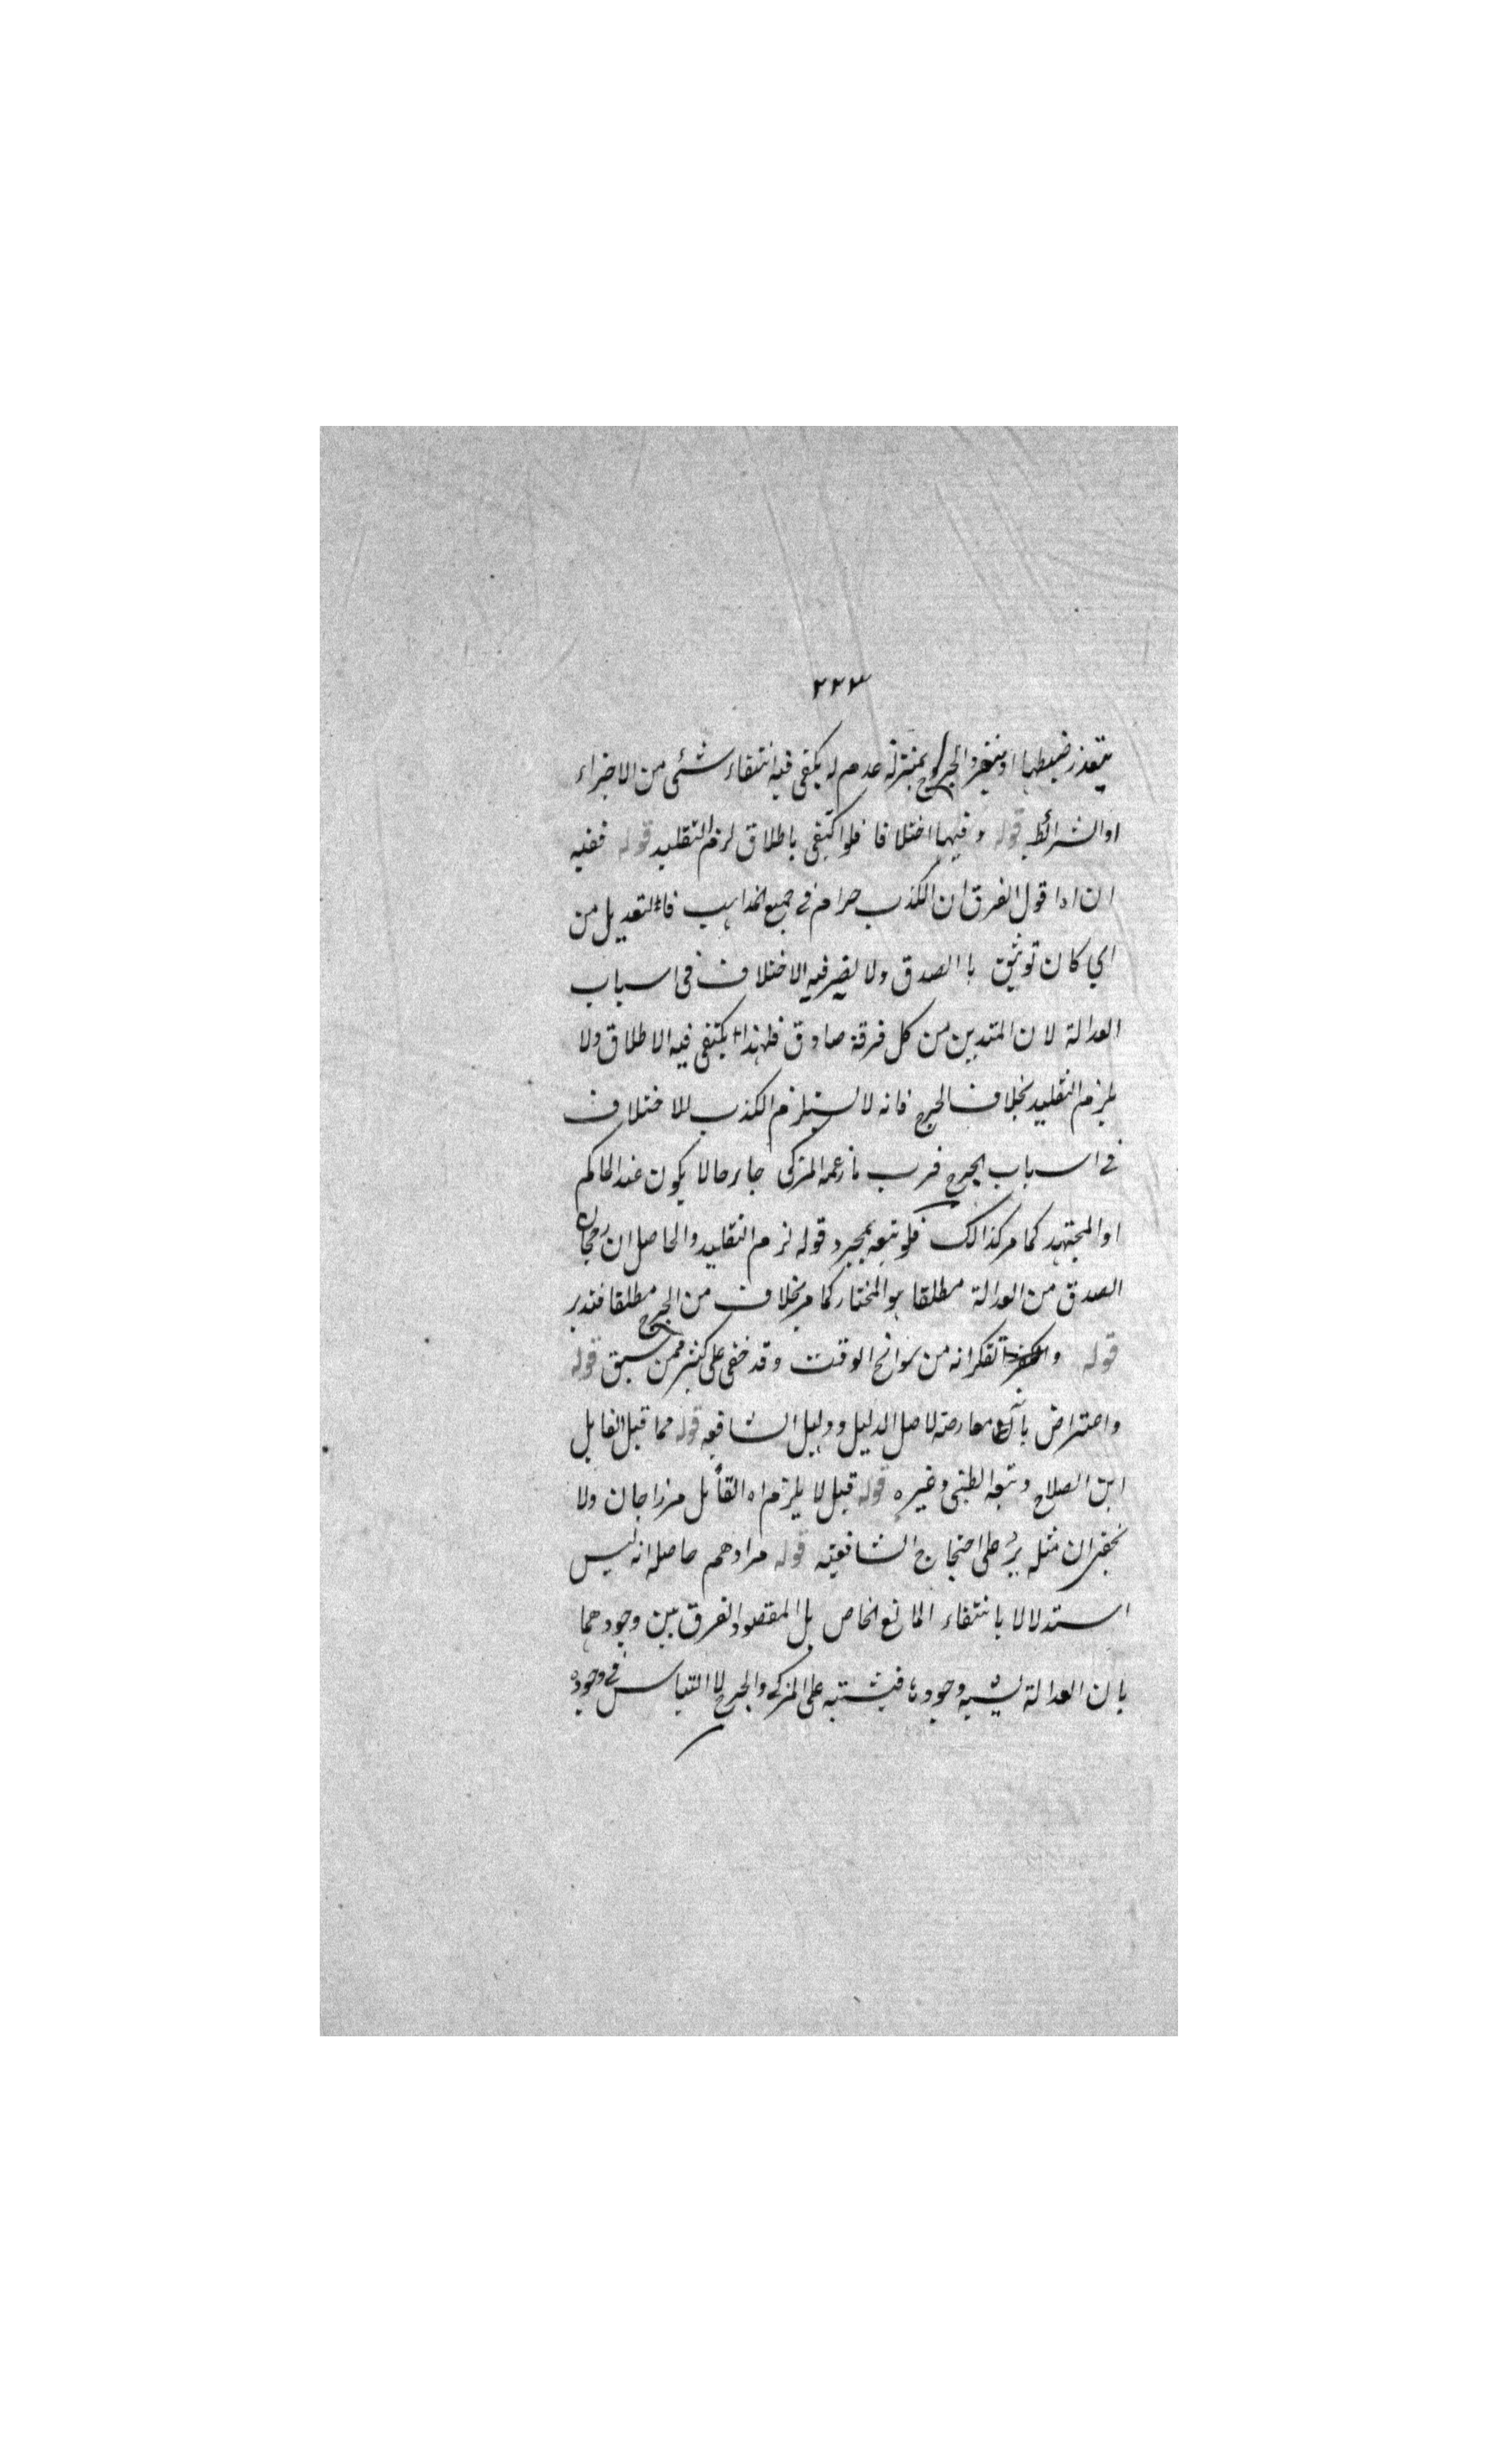 ٢٢٣
يتعذر ضبطها او والجرح بمنزلة عدم له يكفى فيه انتفاء شئى من الاجزاء
او الشرائط قوله وفيها اختلافا فلو اكتفى باطلاق لزم التقليد قوله ففيه
ان اه اقول الفرق ان الكذب حرام فى جميع المذاهب فالتعديل من
اي كان توثيق با الصدق ولا يضر فيه الاختلاف فى اسباب
العدالة لان المتدين من كل فرقة صادق فلهذا يكتفى فيه الاطلاق ولا
يلزم التقليد بخلاف الجرح فانه لا يستلزم الكذب للاختلاف
فى اسباب الجرح فرب ما زعمه المزكى جارحا لا يكون عند الحاكم
او المجتهد كما مر كذالك فلو تبعه بمجرد قوله لزم التقليد والحاصل ان رجحان
الصدق من العدالة مطلقا هو المختار كما مر بخلاف من الجرح مطلقا فتدبر
قوله تفكر انه من سوانح الوقت وقد خفى على كثير ممن سبق قوله
واعتراض بانه معارضة لاصل الدليل ودليل الشافعه قوله مما قيل القايل
ابن الصلاح وتبعه الطيبى وغيره قوله قيل لا يلزم اه القائل مرزاجان ولا
يخفى ان مثله يرد على احتجاج الشافعية قوله مرادهم حاصله انه ليس
استدلالا بانتفاء المانع الخاص بل المقصود الفرق بين وجودهما
بان العدالة يشبه وجودها فيشتبه على المزكى والجرح لا التباس فى وجوده